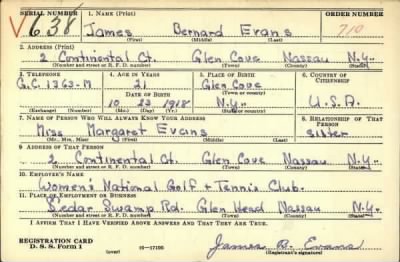 SERIAL NUMBER 1. NAME (Print) ORDER NUMBER
V 638 James Bernard Evans 710
(First) (Middle) (Last)
2. ADDRESS (Print)
2 Continental Ct. Glen Cove Nassau N.Y.
(Number and street or R. F. D. number) (Town) (County) (State)
3. TELEPHONE 4. AGE IN YEARS 5. PLACE OF BIRTH 6. COUNTRY OF CITIZENSHIP
G.C. 1763-M 21 Glen Cove
DATE OF BIRTH (Town or county)
10 23 1918 N.Y. U.S.A.
(Exchange) (Number) (Mo.) (Day) (Yr.) (State or country)
7. NAME OF PERSON WHO WILL ALWAYS KNOW YOUR ADDRESS 8. RELATIONSHIP OF THAT PERSON
Miss Margaret Evans sister
(Mr., Mrs., Miss) (First) (Middle) (Last)
9. ADDRESS OF THAT PERSON
2 Continental Ct. Glen Cove Nassau N.Y.
(Number and street or R. F. D. number) (Town) (County) (State)
10. EMPLOYER'S NAME
Women's National Golf + Tennis Club.
11. PLACE OF EMPLOYMENT OR BUSINESS
Cedar Swamp Rd. Glen Head Nassau N.Y.
(Number and street or R. F. D. number) (Town) (County) (State)
I AFFIRM THAT I HAVE VERIFIED ABOVE ANSWERS AND THAT THEY ARE TRUE.
REGISTRATION CARD
D. S. S. Form 1 (over) 16-17105 James B. Evans
(Registrant's signature)